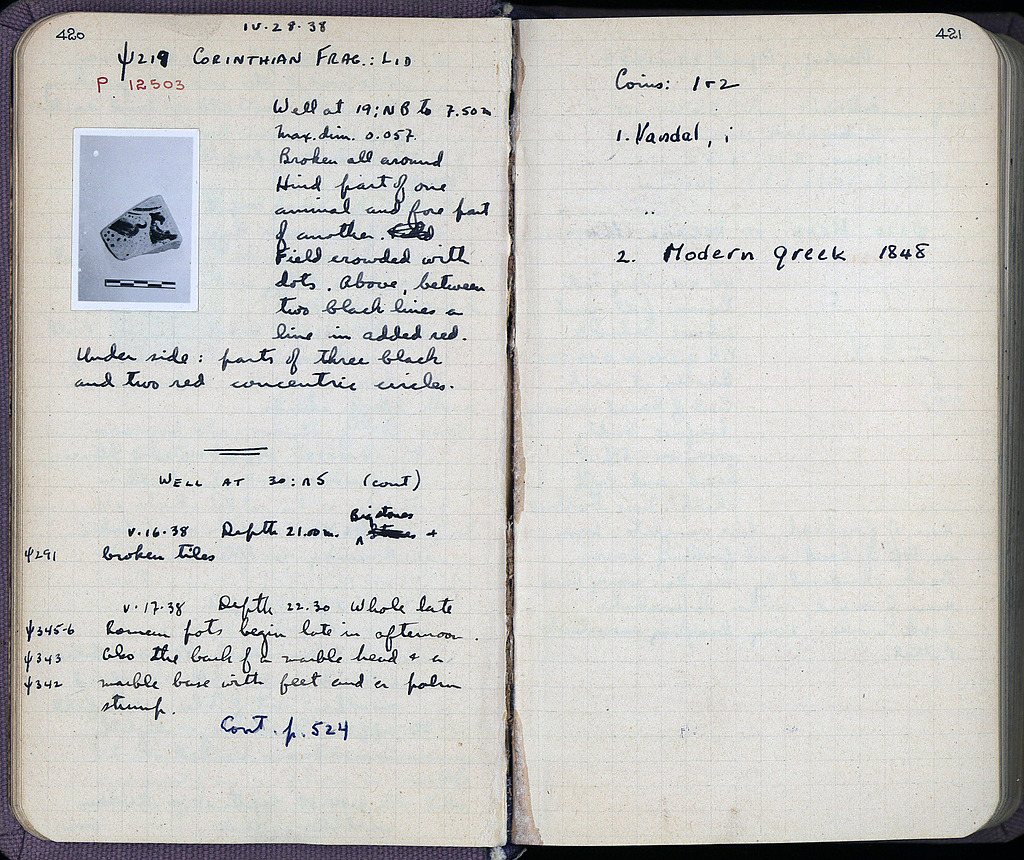 420
IV·28·38
ψ219 CORINTHIAN FRAG.: LID
P 12503
Well at 19; NB to 7.50m
Max. dim. 0.057.
Broken all around
Hind part of one
animal and fore part
of another.
Field crowded with
dots. Above, between
two black lines a
line in added red.
Under side: parts of three black
and two red concentric circles.
WELL AT 30: (cont)
Big stones
V·16·38 Depth 21.00m. ^ +
ψ291 broken tiles
V·17·38 Depth 22.30 Whole late
ψ345-6 Roman pots begin late in afternoon.
ψ343 Also the back of a marble head + a
ψ342 marble base with feet and a palm
stump.
Cont. p. 524
421
Coins: 1+2
1. Vandal, i
2. Modern Greek 1848